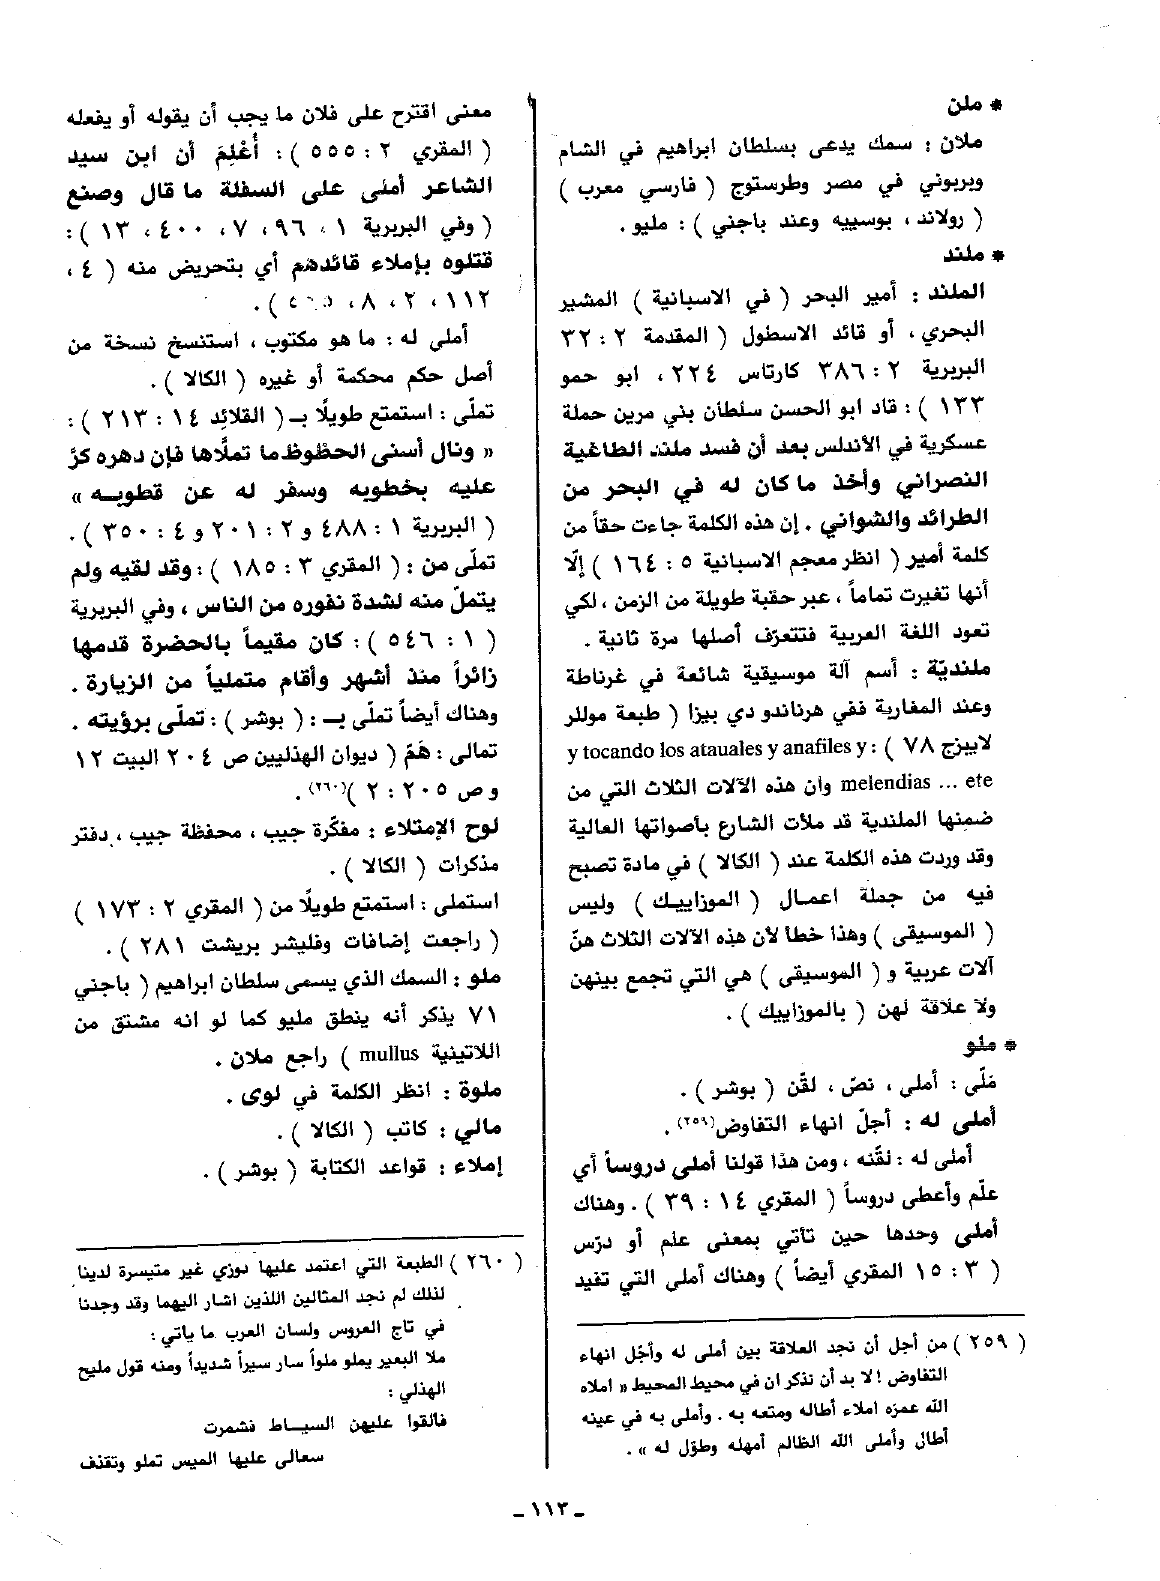 * ملن
ملان : سمك يدعى بسلطان ابراهيم في الشام
وبربوني في مصر وطرستوج ( فارسي معرب )
( رولاند ، بوسييه وعند باجني ) : مليو .
* ملند
الملند : أمير البحر ( في الاسبانية ) المشير
البحري ، أو قائد الاسطول ( المقدمة ٢ : ٣٢
البربرية ٢ : ٣٨٦ كارتاس ٢٢٤ ، ابو حمو
١٣٣ ) : قاد ابو الحسن سلطان بني مرين حملة
عسكرية في الأندلس بعد أن فسد ملند الطاغية
النصراني وأخذ ما كان له في البحر من
الطرائد والشواني . إن هذه الكلمة جاءت حقاً من
كلمة أمير ( انظر معجم الاسبانية ٥ : ١٦٤ ) إلّا
أنها تغيرت تماماً ، عبر حقبة طويلة من الزمن ، لكي
تعود اللغة العربية فتتعرّف أصلها مرة ثانية .
ملنديّة : أسم آلة موسيقية شائعة في غرناطة
وعند المغاربة ففي هرناندو دي بيزا ( طبعة موللر
لايبزج ٧٨ ) : y tocando los atauales y anafiles y
melendias ... ete وان هذه الآلات الثلاث التي من
ضمنها الملندية قد ملأت الشارع بأصواتها العالية
وقد وردت هذه الكلمة عند ( الكالا ) في مادة تصبح
فيه من جملة اعمال ( الموزاييك ) وليس
( الموسيقى ) وهذا خطا لأن هذه الآلات الثلاث هنّ
آلات عربية و ( الموسيقى ) هي التي تجمع بينهن
ولا علاقة لهن ( بالموزاييك ) .
* ملو
مَلّى : أملى ، نصّ ، لقّن ( بوشر ) .
أملى له : أجلّ انهاء التفاوض(٢٥٩) .
أملى له : لقّنه ، ومن هذا قولنا أملى دروساً أي
علّم وأعطى دروساً ( المقري ١٤ : ٣٩ ) . وهناك
أملى وحدها حين تأتي بمعنى علم أو درّس
( ٣ : ١٥ المقري أيضاً ) وهناك أملى التي تفيد
( ٢٥٩ ) من أجل أن نجد العلاقة بين أملى له وأجّل انهاء
التفاوض ! لا بد أن نذكر ان في محيط المحيط « املاه
الله عمره املاء أطاله ومتعه به . وأملى به في عينه
أطال وأملى الله الظالم أمهله وطوّل له » .
معنى اقترح على فلان ما يجب أن يقوله أو يفعله
( المقري ٢ : ٥٥٥ ) : أُعْلِمَ أن ابن سيد
الشاعر أملى على السفلة ما قال وصنع
( وفي البربرية ١ ، ٩٦ ، ٧ ، ٤٠٠ ، ١٣ ) :
قتلوه بإملاء قائدهم أي بتحريض منه ( ٤ ،
١١٢ ، ٢ ، ٨ ، ) .
أملى له : ما هو مكتوب ، استنسخ نسخة من
أصل حكم محكمة أو غيره ( الكالا ) .
تملّى : استمتع طويلًا بـ ( القلائد ١٤ : ٢١٣ ) :
« ونال أسنى الحظوظ ما تملّاها فإن دهره كرّ
عليه بخطوبه وسفر له عن قطوبـه »
( البربرية ١ : ٤٨٨ و ٢ : ٢٠١ و ٤ : ٣٥٠ ) .
تملّى من : ( المقري ٣ : ١٨٥ ) : وقد لقيه ولم
يتملّ منه لشدة نفوره من الناس ، وفي البربرية
( ١ : ٥٤٦ ) : كان مقيماً بالحضرة قدمها
زائراً منذ أشهر وأقام متملياً من الزيارة .
وهناك أيضاً تملّى بـ : ( بوشر ) : تملّى برؤيته .
تمالى : هَمّ ( ديوان الهذليين ص ٢٠٤ البيت ١٢
و ص ٢٠٥ : ٢ )(٢٦٠) .
لوح الإمتلاء : مفكّرة جيب ، محفظة جيب ، دفتر
مذكرات ( الكالا ) .
استملى : استمتع طويلًا من ( المقري ٢ : ١٧٣ )
( راجعت إضافات وفليشر بريشت ٢٨١ ) .
ملو : السمك الذي يسمى سلطان ابراهيم ( باجني
٧١ يذكر أنه ينطق مليو كما لو انه مشتق من
اللاتينية mullus ) راجع ملان .
ملوة : انظر الكلمة في لوى .
مالي : كاتب ( الكالا ) .
إملاء : قواعد الكتابة ( بوشر ) .
( ٢٦٠ ) الطبعة التي اعتمد عليها دوزي غير متيسرة لدينا
لذلك لم نجد المثالين اللذين اشار اليهما وقد وجدنا
في تاج العروس ولسان العرب ما يأتي :
ملا البعير يملو ملواً سار سيراً شديداً ومنه قول مليح
الهذلي :
فألقوا عليهن السيـاط فشمرت
سعالى عليها الميس تملو وتقذف
ـ ١١٣ ـ